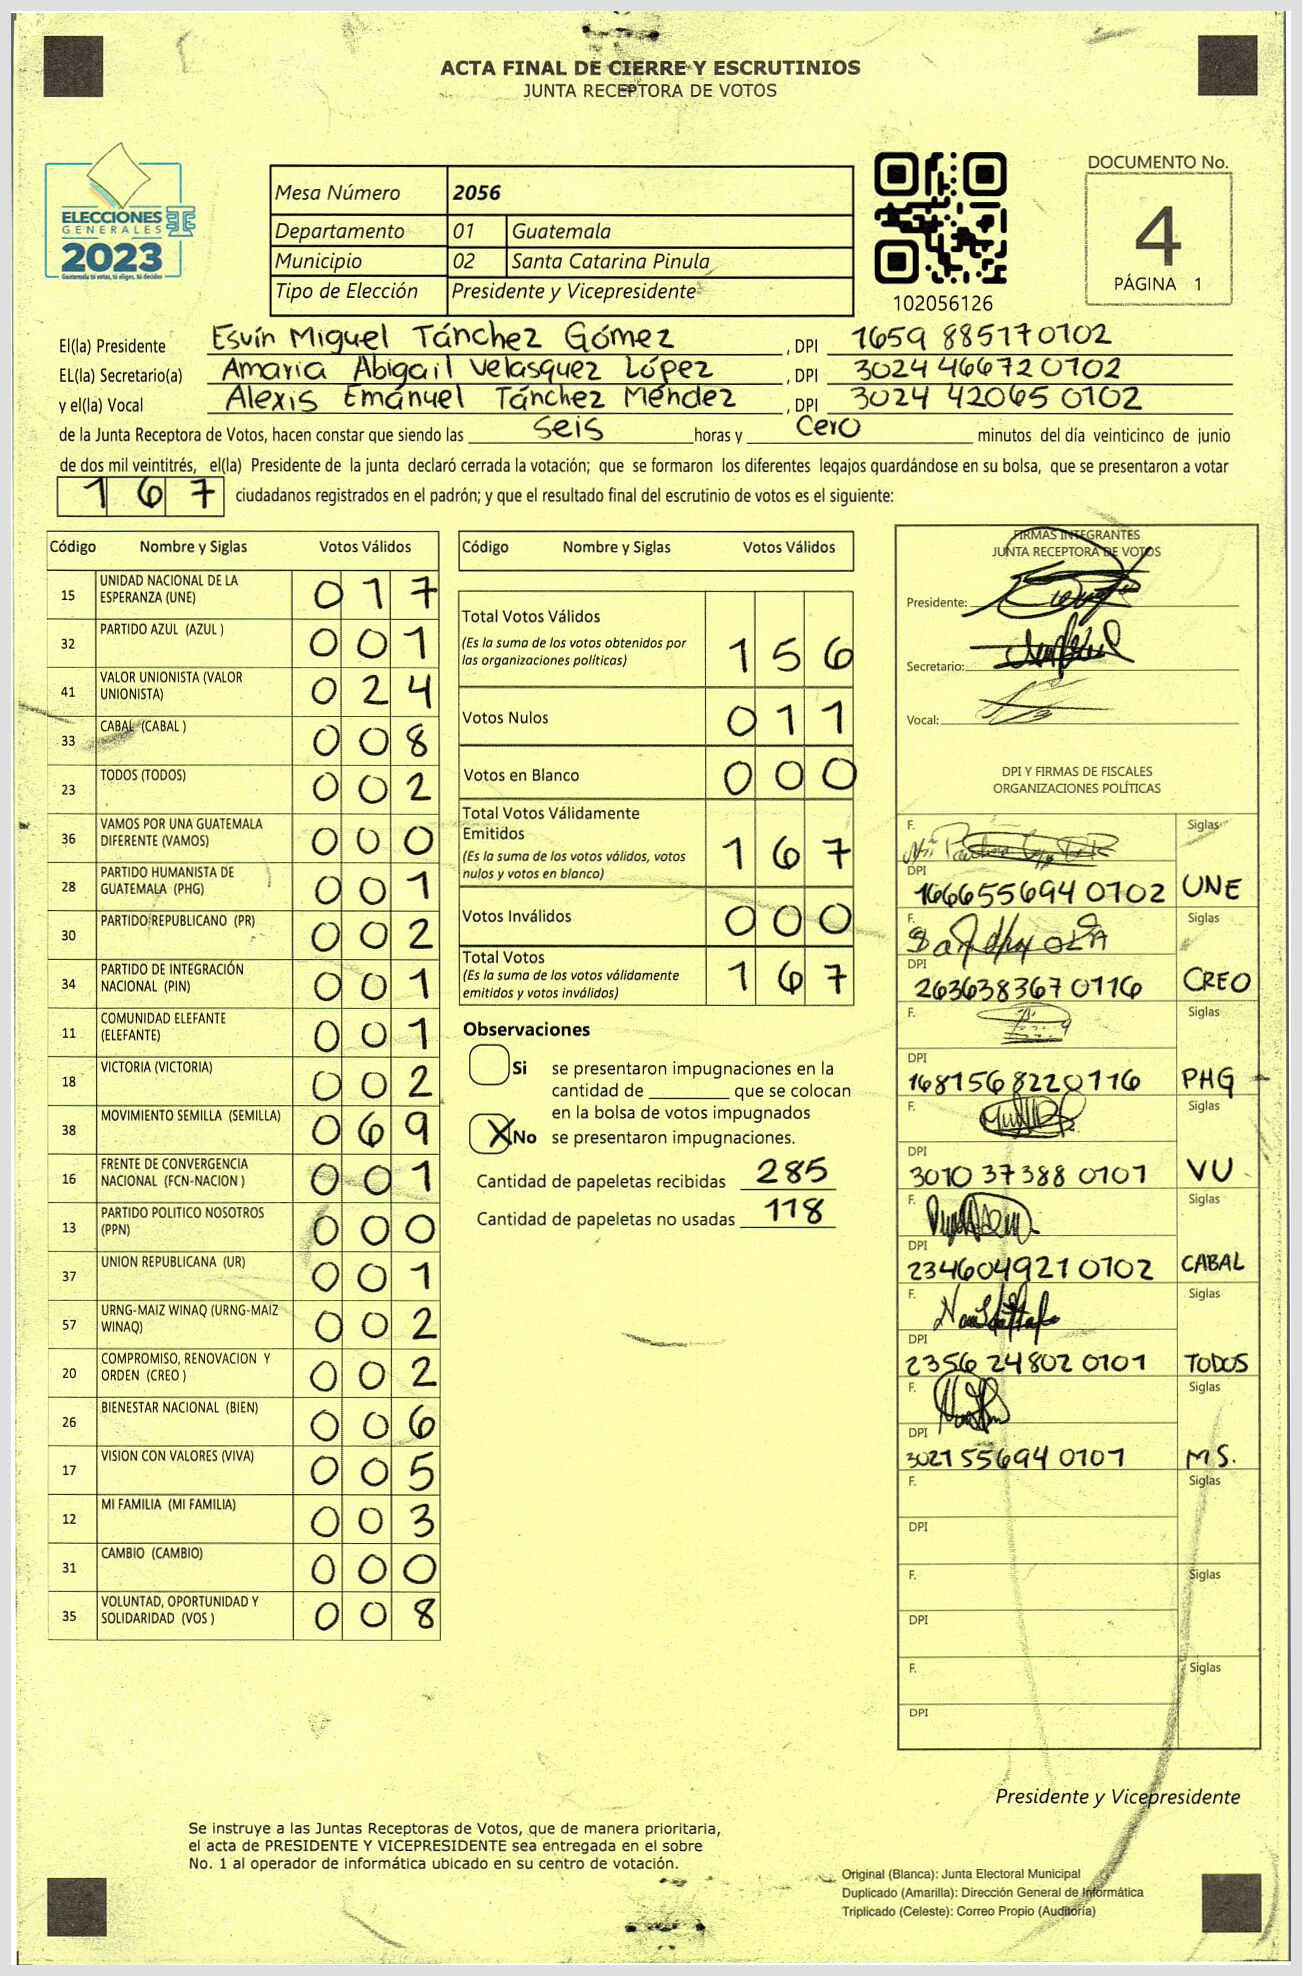 ACTA FINAL DE CIERRE Y ESCRUTINIOS
JUNTA RECEPTORA DE VOTOS
ELECCIONES
GENERALES
2023
Guatemala tú votas, tú eliges, tú decides
Mesa Número 2056
Departamento 01 Guatemala
Municipio 02 Santa Catarina Pinula
Tipo de Elección Presidente y Vicepresidente
102056126
DOCUMENTO No.
4
PÁGINA 1
El(la) Presidente Esvín Miguel Tánchez Gómez, DPI 1659 88517 0102
EL(la) Secretario(a) Amaria Abigail Velasquez López, DPI 3024 46672 0102
y el(la) Vocal Alexis Emánuel Tánchez Méndez, DPI 3024 42065 0102
de la Junta Receptora de Votos, hacen constar que siendo las seis horas y cero minutos del día veinticinco de junio
de dos mil veintitrés, el(la) Presidente de la junta declaró cerrada la votación; que se formaron los diferentes legajos guardándose en su bolsa, que se presentaron a votar
167 ciudadanos registrados en el padrón; y que el resultado final del escrutinio de votos es el siguiente:
Código Nombre y Siglas Votos Válidos
15 UNIDAD NACIONAL DE LA ESPERANZA (UNE) 017
32 PARTIDO AZUL (AZUL ) 001
41 VALOR UNIONISTA (VALOR UNIONISTA) 024
33 CABAL (CABAL ) 008
23 TODOS (TODOS) 002
36 VAMOS POR UNA GUATEMALA DIFERENTE (VAMOS) 000
28 PARTIDO HUMANISTA DE GUATEMALA (PHG) 001
30 PARTIDO REPUBLICANO (PR) 002
34 PARTIDO DE INTEGRACIÓN NACIONAL (PIN) 001
11 COMUNIDAD ELEFANTE (ELEFANTE) 001
18 VICTORIA (VICTORIA) 002
38 MOVIMIENTO SEMILLA (SEMILLA) 069
16 FRENTE DE CONVERGENCIA NACIONAL (FCN-NACION ) 001
13 PARTIDO POLITICO NOSOTROS (PPN) 000
37 UNION REPUBLICANA (UR) 001
57 URNG-MAIZ WINAQ (URNG-MAIZ WINAQ) 002
20 COMPROMISO, RENOVACION Y ORDEN (CREO ) 002
26 BIENESTAR NACIONAL (BIEN) 006
17 VISION CON VALORES (VIVA) 005
12 MI FAMILIA (MI FAMILIA) 003
31 CAMBIO (CAMBIO) 000
35 VOLUNTAD, OPORTUNIDAD Y SOLIDARIDAD (VOS ) 008
Código Nombre y Siglas Votos Válidos
Total Votos Válidos
(Es la suma de los votos obtenidos por las organizaciones políticas) 156
Votos Nulos 011
Votos en Blanco 000
Total Votos Válidamente Emitidos
(Es la suma de los votos válidos, votos nulos y votos en blanco) 167
Votos Inválidos 000
Total Votos
(Es la suma de los votos válidamente emitidos y votos inválidos) 167
Observaciones
Si se presentaron impugnaciones en la
cantidad de ________ que se colocan
en la bolsa de votos impugnados
X No se presentaron impugnaciones.
Cantidad de papeletas recibidas 285
Cantidad de papeletas no usadas 118
FIRMAS INTEGRANTES
JUNTA RECEPTORA DE VOTOS
Presidente:
Secretario:
Vocal:
DPI Y FIRMAS DE FISCALES
ORGANIZACIONES POLÍTICAS
F. Siglas
DPI 166655694 0102 UNE
F. Siglas
DPI 263638367 0116 CREO
F. Siglas
DPI 168156822 0116 PHG
F. Siglas
DPI 3010 37388 0101 VU
F. Siglas
DPI 234604921 0102 CABAL
F. Siglas
DPI 2356 24802 0101 TODOS
F. Siglas
DPI 3021 55694 0101 M S.
F. Siglas
DPI
F. Siglas
DPI
F. Siglas
DPI
Presidente y Vicepresidente
Se instruye a las Juntas Receptoras de Votos, que de manera prioritaria,
el acta de PRESIDENTE Y VICEPRESIDENTE sea entregada en el sobre
No. 1 al operador de informática ubicado en su centro de votación.
Original (Blanca): Junta Electoral Municipal
Duplicado (Amarilla): Dirección General de Informática
Triplicado (Celeste): Correo Propio (Auditoría)